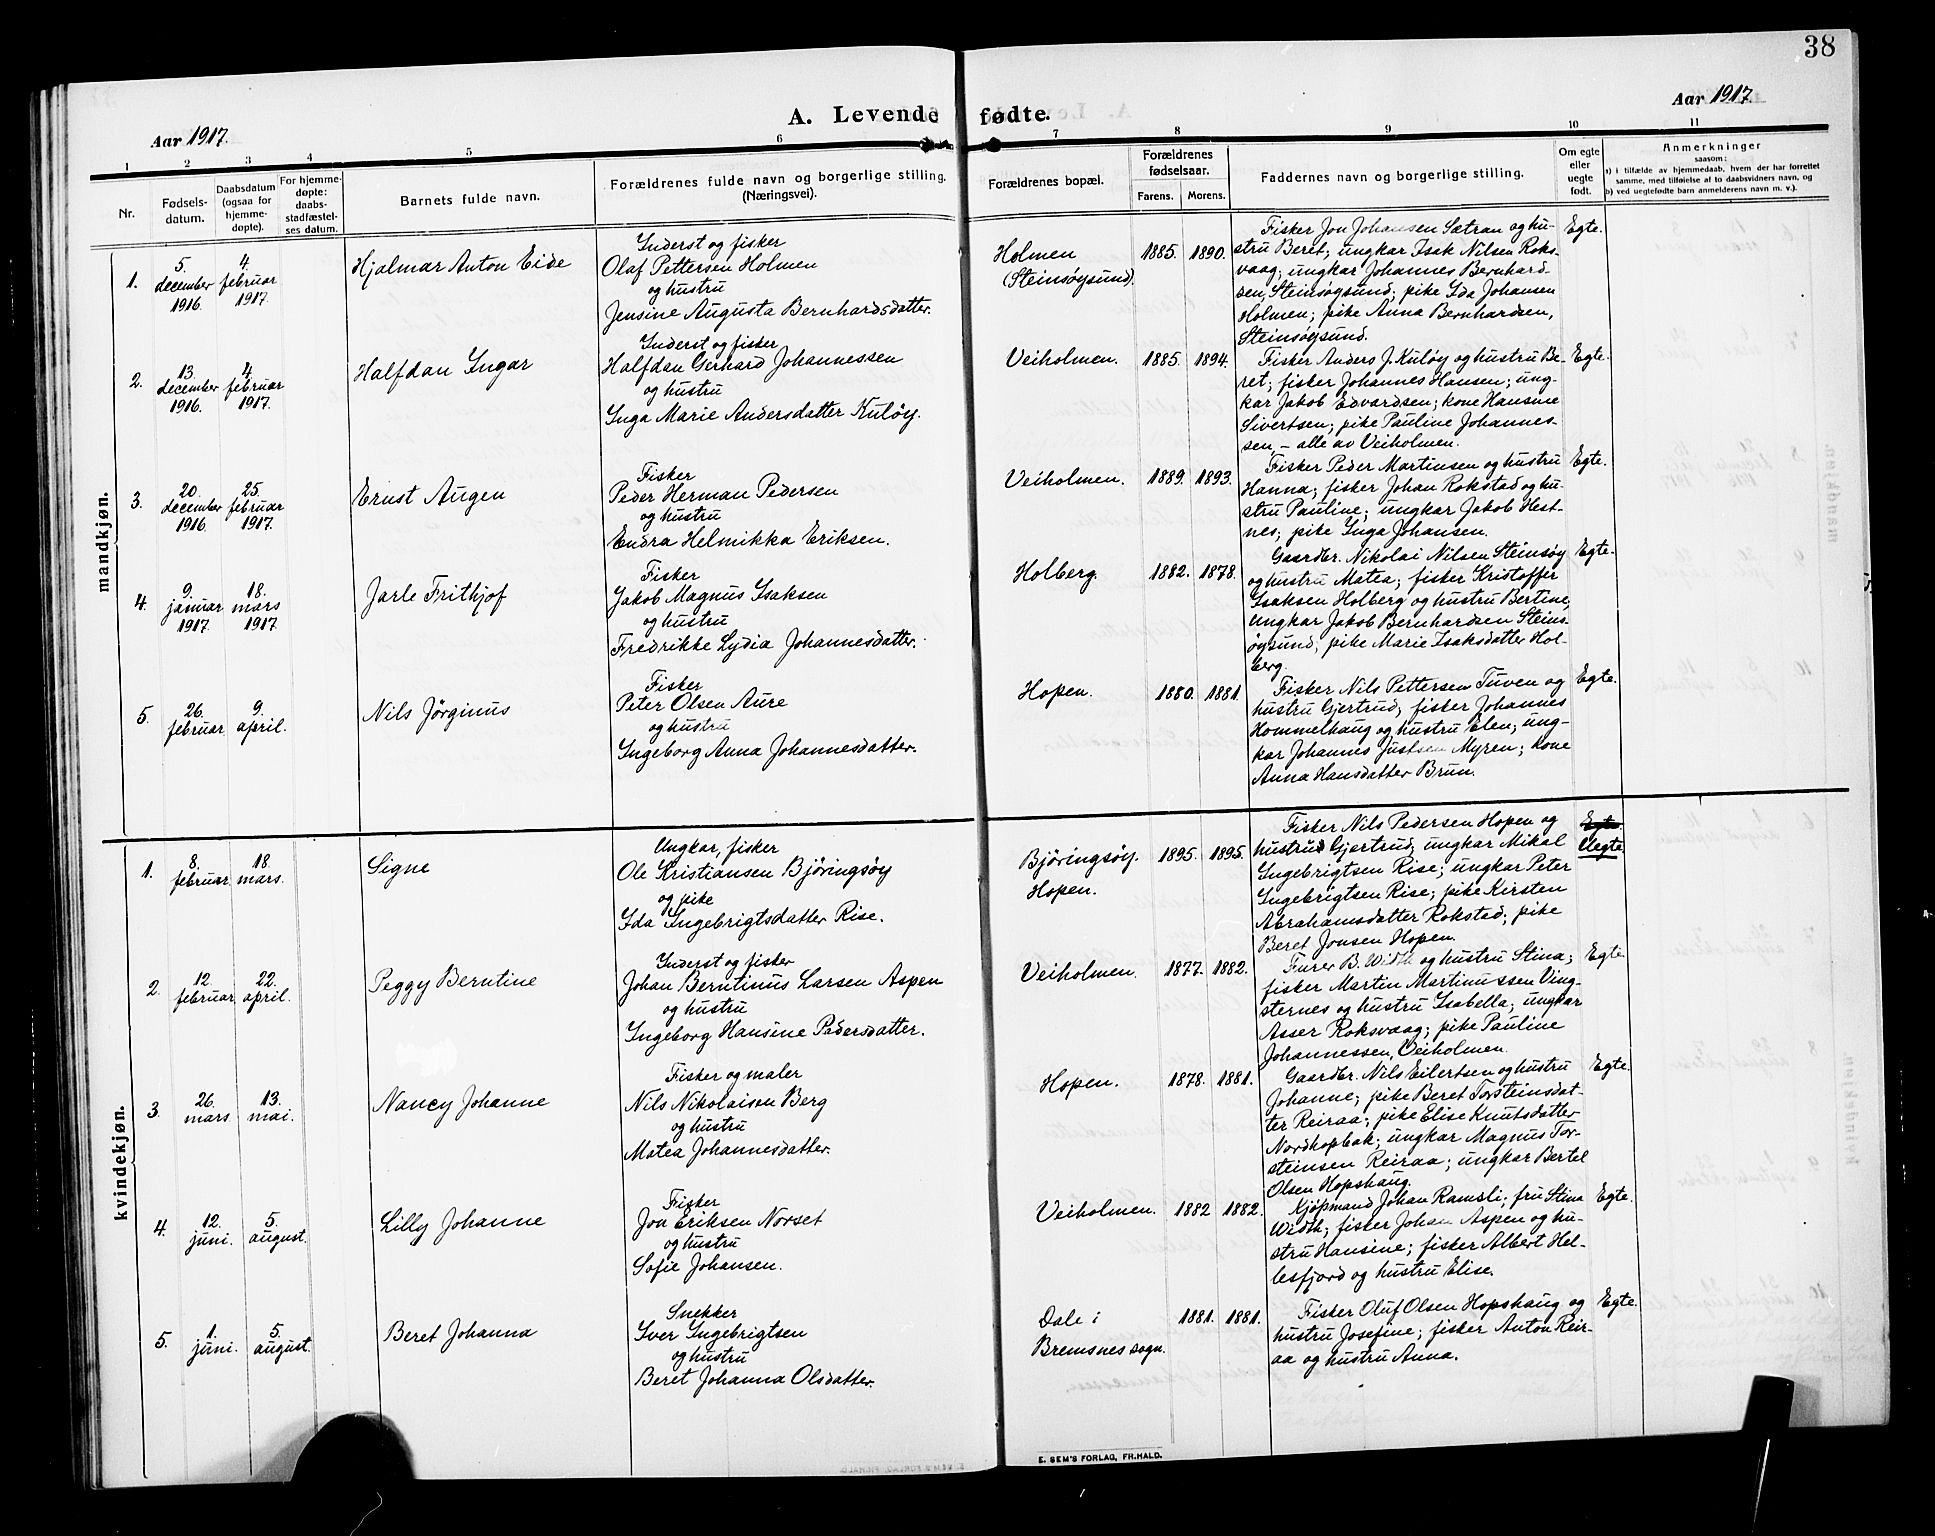 38
A. Levende fødte.
Aar 1917.
Aar 1917.
1 2 3 4 5 6 7 8 9 10 11
Nr.
Fødsels-
datum.
Daabsdatum
(ogsaa for
hjemme-
døpte).
For hjemme-
døpte:
daabs-
stadfæstel-
ses datum.
Barnets fulde navn.
Forældrenes fulde navn og borgerlige stilling.
(Næringsvei).
Forældrenes bopæl.
Forældrenes
fødselsaar.
Farens. Morens.
Faddernes navn og borgerlige stilling.
Om egte
eller
uegte
født.
Anmerkninger
saasom:
a) i tilfælde av hjemmedaab, hvem der har forrettet
samme, med tilføielse af to daabsvidners navn, og
b) ved uegtefødte barn anmelderens navn m. v.).
mandkjøn.
1.
5.
december
1916.
4.
februar
1917.
Hjalmar Anton Eide
Inderst og fisker
Olaf Pettersen Holmen
og hustru
Jensine Augusta Bernhardsdatter.
Holmen
(Steinsøysund).
1885. 1890.
Fisker Jon Johansen Sætran og hu-
stru Beret; ungkar Isak Nilsen Roks-
vaag; ungkar Johannes Bernhard-
sen, Steinsøysund; pike Ida Johansen
Holmen; pike Anna Bernhardsen,
Steinsøysund.
Egte.
2.
13.
december
1916.
4.
februar
1917.
Halfdan Ingar
Inderst og fisker
Halfdan Gerhard Johannessen
og hustru
Inga Marie Andersdatter Kuløy.
Veiholmen.
1885. 1894.
Fisker Anders J. Kuløy og hustru Be-
ret; fisker Johannes Hansen; ung-
kar Jakob Edvardsen; kone Hansine
Sivertsen; pike Pauline Johannes-
sen, - alle av Veiholmen.
Egte.
3.
20.
december
1916.
25.
februar
1917.
Ernst Augen
Fisker
Peder Herman Pedersen
og hustru
Endra Helmikka Eriksen.
Veiholmen.
1889. 1893.
Fisker Peder Martinsen og hustru
Hanna; fisker Johan Rokstad og hu-
stru Pauline; ungkar Jakob Hest-
nes; pike Inga Johansen.
Egte.
4.
9.
januar
1917.
18.
mars
1917.
Jarle Frithjof
Fisker
Jakob Magnus Isaksen
og hustru
Fredrikke Lydia Johannesdatter.
Holberg.
1882. 1878.
Gaardbr. Nikolai Nilsen Steinsøy
og hustru Matea; fisker Kristoffer
Isaksen Holberg og hustru Bertine;
ungkar Jakob Bernhardsen Steins-
øysund; pike Marie Isaksdatter Hol-
berg.
Egte.
5.
26.
februar
9.
april.
Nils Jörginus
Fisker
Peter Olsen Aure
og hustru
Ingeborg Anna Johannesdatter.
Hopen.
1880. 1881.
Fisker Nils Pettersen Tuven og
hustru Gjertrud; fisker Johannes
Hommelhaug og hustru Elen; ung-
kar Johannes Justsen Myren; kone
Anna Hansdatter Brun.
Egte.
kvindekjøn.
1.
8.
februar
18.
mars.
Signe
Ungkar, fisker
Ole Kristiansen Björingsøy
og pike
Ida Ingebrigtsdatter Rise.
Björingsøy.
Hopen.
1895. 1895.
Fisker Nils Pedersen Hopen og
hustru Gjertrud; ungkar Mikal
Ingebrigtsen Rise; ungkar Peter
Ingebrigtsen Rise; pike Kirsten
Abrahamsdatter Rokstad; pike
Beret Jonsen Hopen.
Egte.
Uegte
2.
12.
februar
22.
april.
Peggy Berntine
Inderst og fisker
Johan Berntinus Larsen Aspen
og hustru
Ingeborg Hansine Pedersdatter.
Veiholmen.
1877. 1882.
Furer B. Width og hustru Stina;
fisker Martin Martinussen Ving-
sternes og hustru Isabella; ungkar
Asser Roksvaag; pike Pauline
Johannessen, Veiholmen.
Egte.
3.
26.
mars
13.
mai.
Nancy Johanne
Fisker og maler
Nils Nikolaisen Berg
og hustru
Matea Johannesdatter.
Hopen.
1878. 1881.
Gaardbr. Nils Eilertsen og hustru
Johanne; pike Beret Torsteinsdat-
ter Reiraa; pike Elise Knutsdatter
Nordhopbak; ungkar Magnus Tor-
steinsen Reiraa; ungkar Bertel
Olsen Hopshaug.
Egte.
4.
12.
juni.
5.
august.
Lilly Johanne
Fisker
Jon Eriksen Norset
og hustru
Sofie Johansen.
Veiholmen.
1882 1882.
Kjøpmand Johan Ramsli; fru Stina
Width; fisker Johan Aspen og hu-
stru Hansine; fisker Albert Hel-
lesfjord og hustru Elise.
Egte.
5.
1.
juni.
5.
august.
Beret Johanna
Snekker
Iver Ingebrigtsen
og hustru
Beret Johanna Olsdatter.
Dale i
Bremsnes sogn.
1881. 1881.
Fisker Oluf Olsen Hopshaug og
hustru Josefine; fisker Anton Reir-
aa og hustru Anna.
Egte.
E. SEM'S FORLAG, FR.HALD.